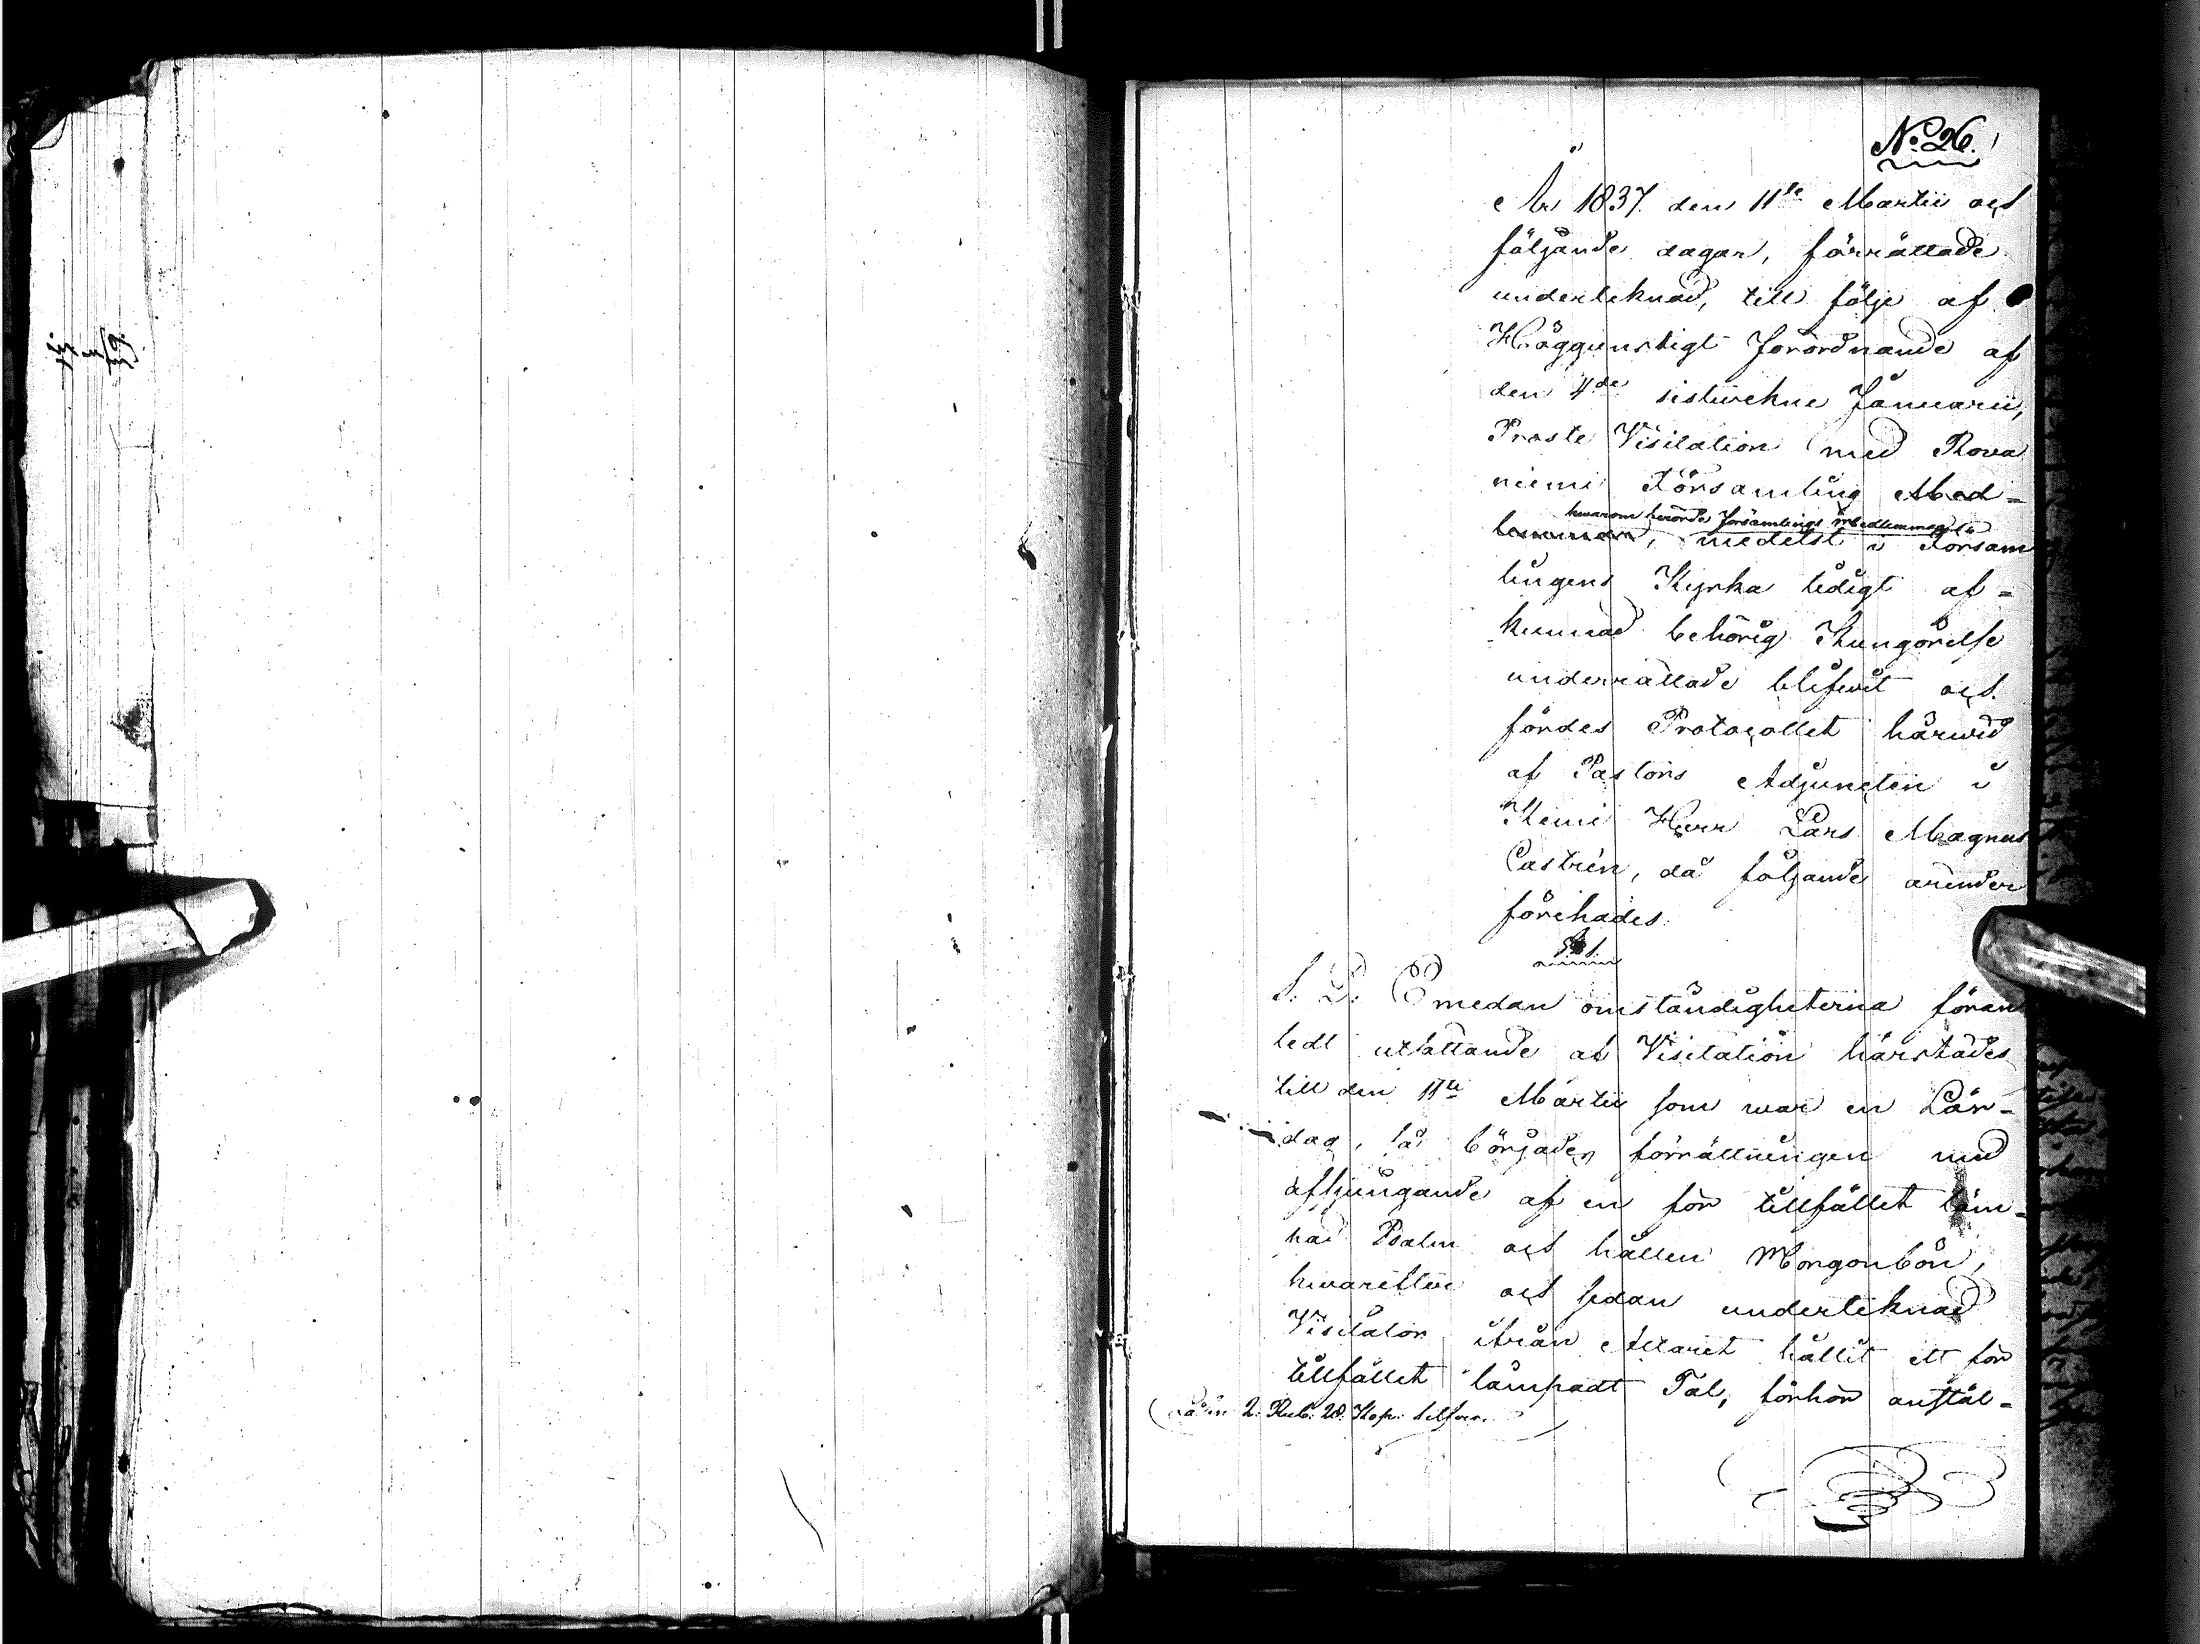 No. 26.
År 1837 den 11te Martii och
följande dagar, förrättade
underteknad, till följe af
Höggunstigt Förordnande af
den 4de sistwekne Januarii,
Proste Visitation med Rova
niemi Församling Med-
hwarom berörde Församlings Medlemmar
lemmar, medelst i Försam
lingens Kyrka tidigt af-
kunnad behörig Kungörelse
underrättade blifwit och
fördes Protocollet härwid
af Pastors Adjuncten i
Kemi Herr Lars Magnus
Castrén, då följande ärender
förehades.
§ 1.
S. D. Emedan omständigheterna föran
ledt utsättande af Visitation härstädes
till den 11te Martii som war en Lör-
dag, så började förrättningen med
afsjungande af en för tillfället läm-
pad Psalm och hållen Morgonbön,
hwarefter och sedan underteknad
Visitator ifrån Altaret hållit ett för
tillfället lämpadt Tal, förhör anstäl-
2. Rub. 28. Kop. Silfwer.